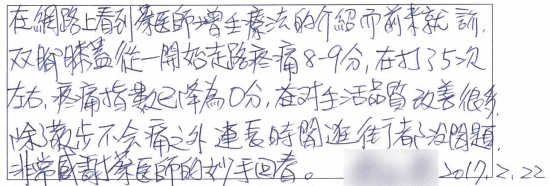 在網路上看到葉医師增生療法的介紹而前來就診.
双腳膝蓋從一開始走路疼痛8-9分,在打了5次
左右,疼痛指數已降為0分,在对生活品質改善很多,
除散步不会痛之外 連長時間逛街都沒問題.
非常感謝葉医師的妙手回春。
2017.2.22